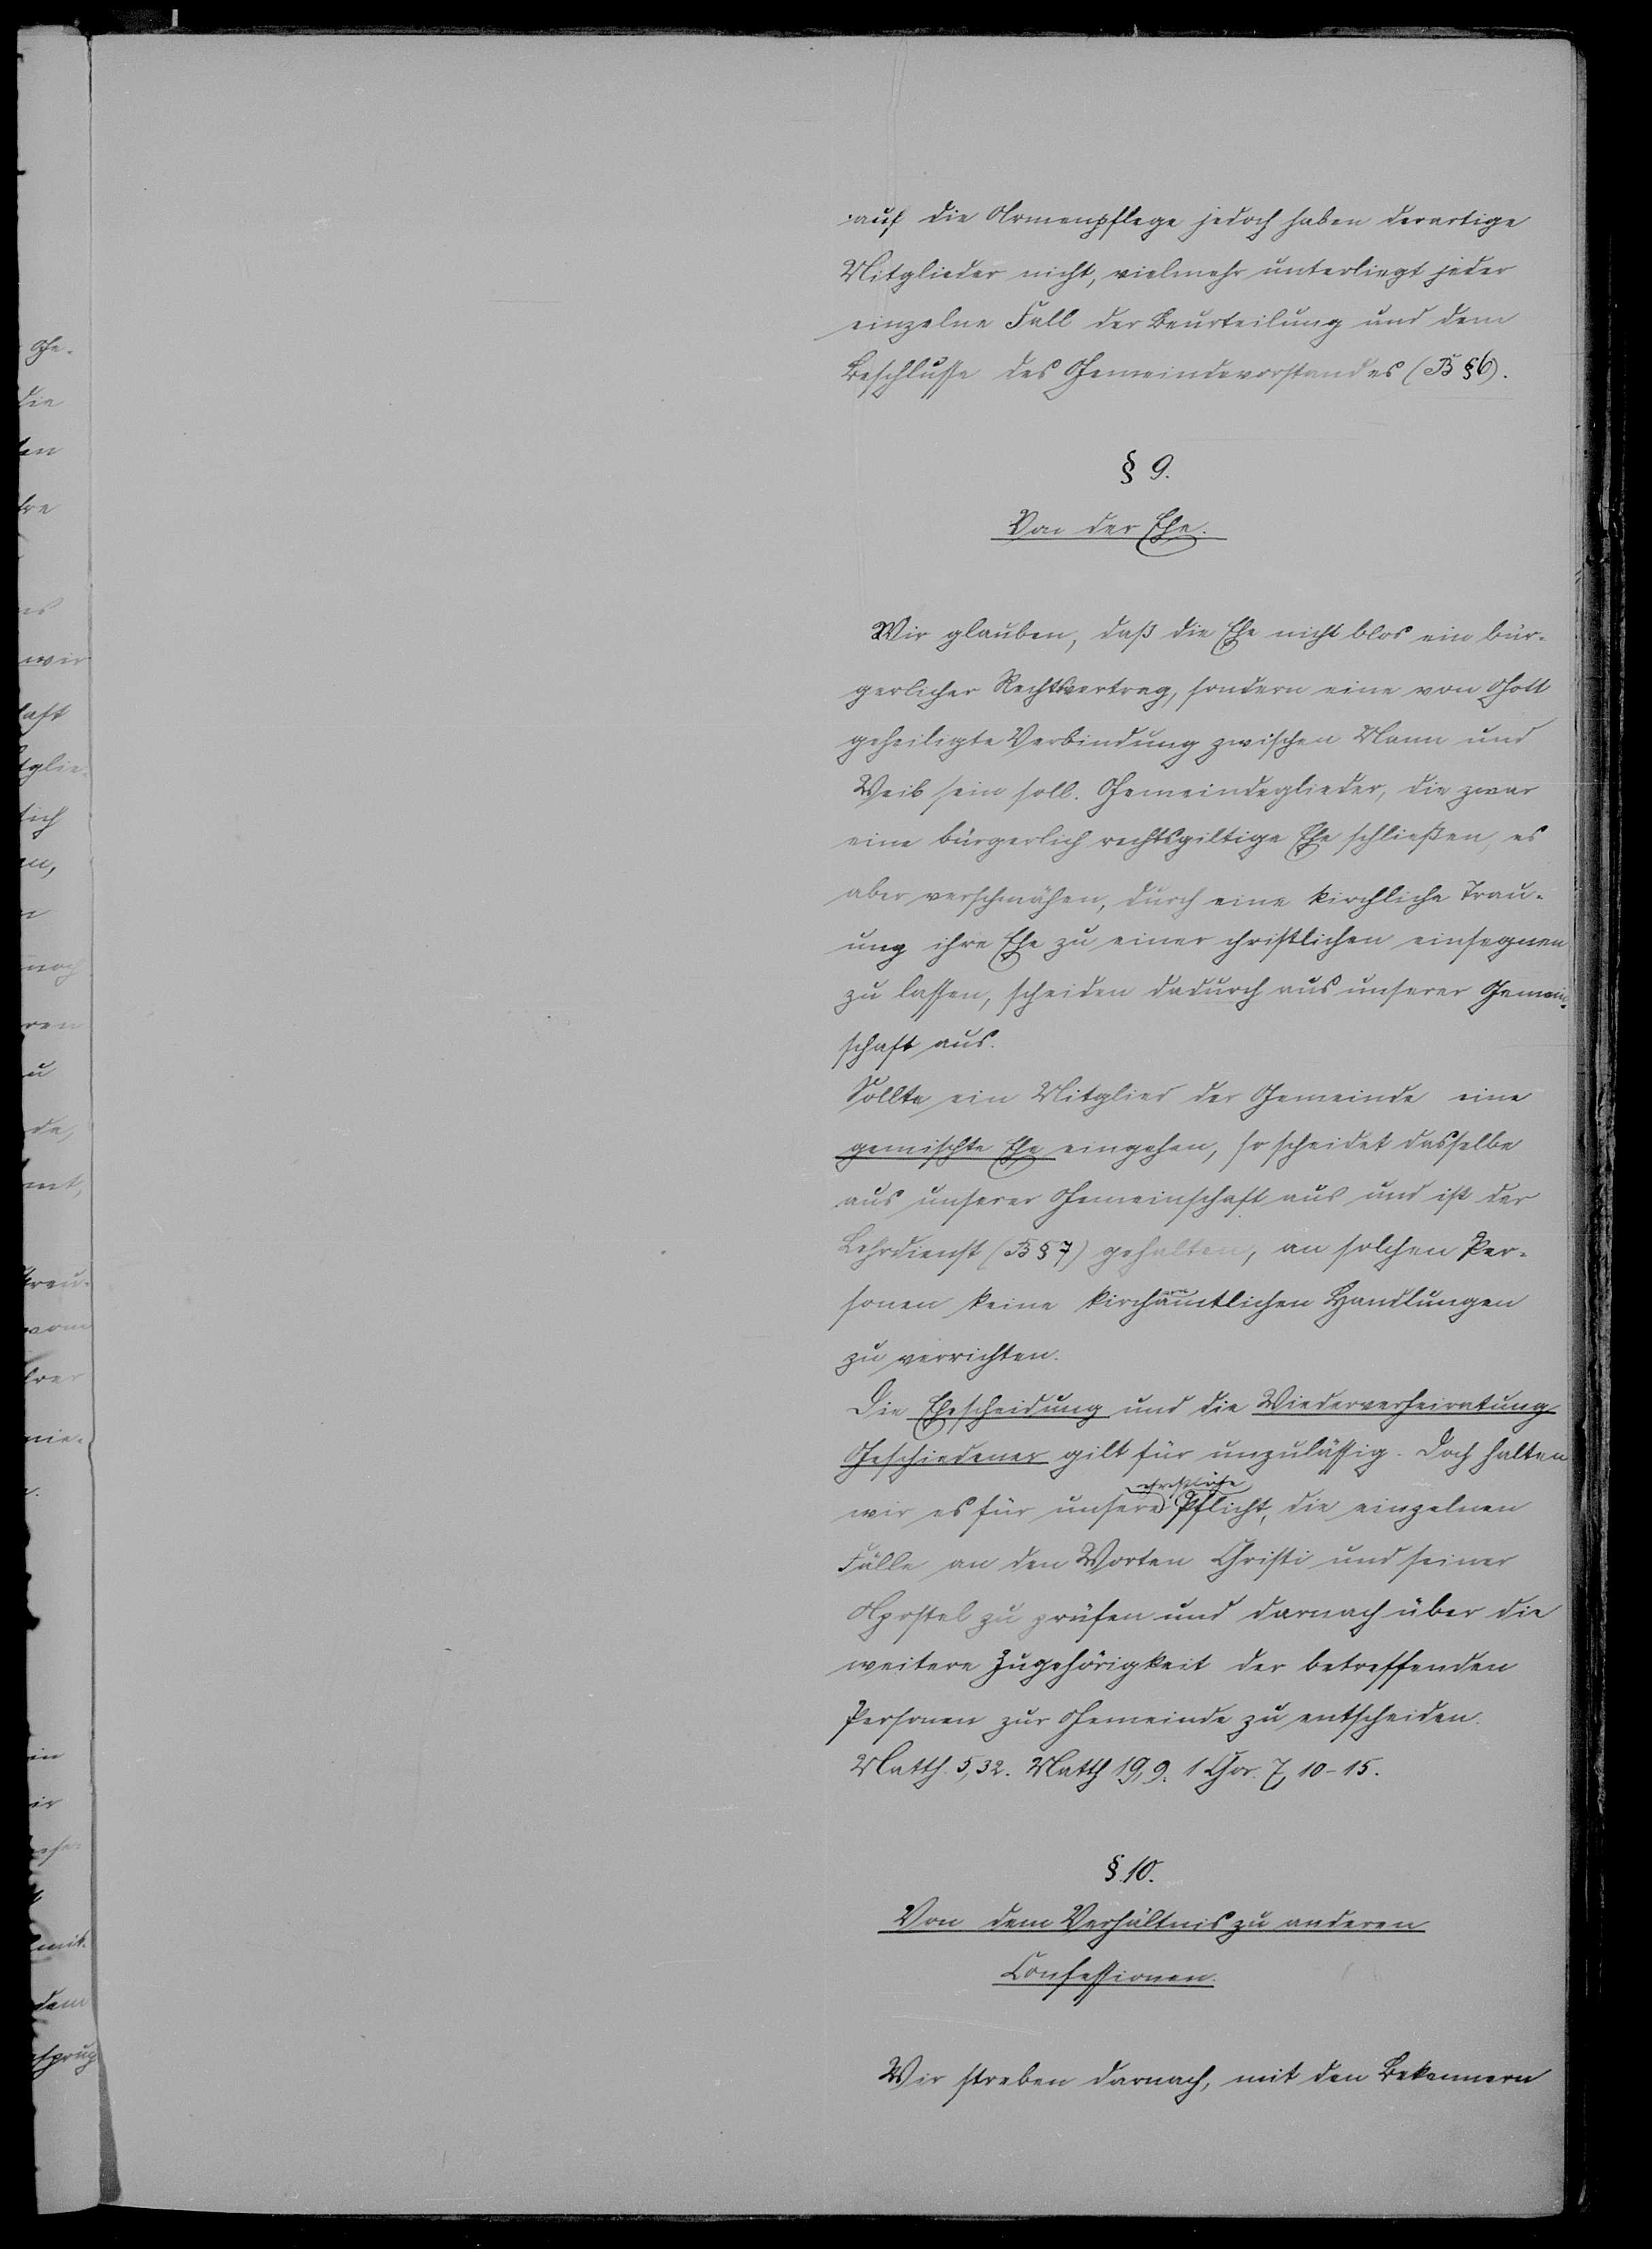 auf die Armenpflege jedoch haben derartige
Mitglieder nicht, vielmehr unterliegt jeder
einzelne Fall der Beurteilung und dem
Beschlusse des Gemeindevorstandes (B § 6).
§ 9.
Von der Ehe.
Wir glauben, daß die Ehe nicht blos ein bür-
gerlicher Rechtsvertrag, sondern eine von Gott
geheiligte Verbindung zwischen Mann und
Weib sein soll. Gemeindeglieder, die zwar
eine bürgerlich rechtsgiltige Ehe schließen, es
aber verschmähen, durch eine kirchliche Trau-
ung ihre Ehe zu einer christlichen einsegnen
zu lassen, scheiden dadurch aus unserer Gemein-
schaft aus.
Sollte ein Mitglied der Gemeinde eine
gemischte Ehe eingehen, so scheidet dasselbe
aus unserer Gemeinschaft aus und ist der
Lehrdienst (B § 7) gehalten, an solchen Per-
sonen keine kirchamtlichen Handlungen
zu verrichten.
Die Ehescheidung und die Wiederverheiratung
Geschiedener gilt für unzulässig. Doch halten
wir es für unsere Pflicht, die einzelnen
Fälle an den Worten Christi und seiner
Apostel zu prüfen und darnach über die
weitere Zugehörigkeit der betreffenden
Personen zur Gemeinde zu entscheiden.
Matth. 5,32. Matth 19,9. 1 Chor. 7, 10-15.
§. 10.
Von dem Verhältnis zu anderen
Confessionen.
Wir streben darnach, mit den Bekennern